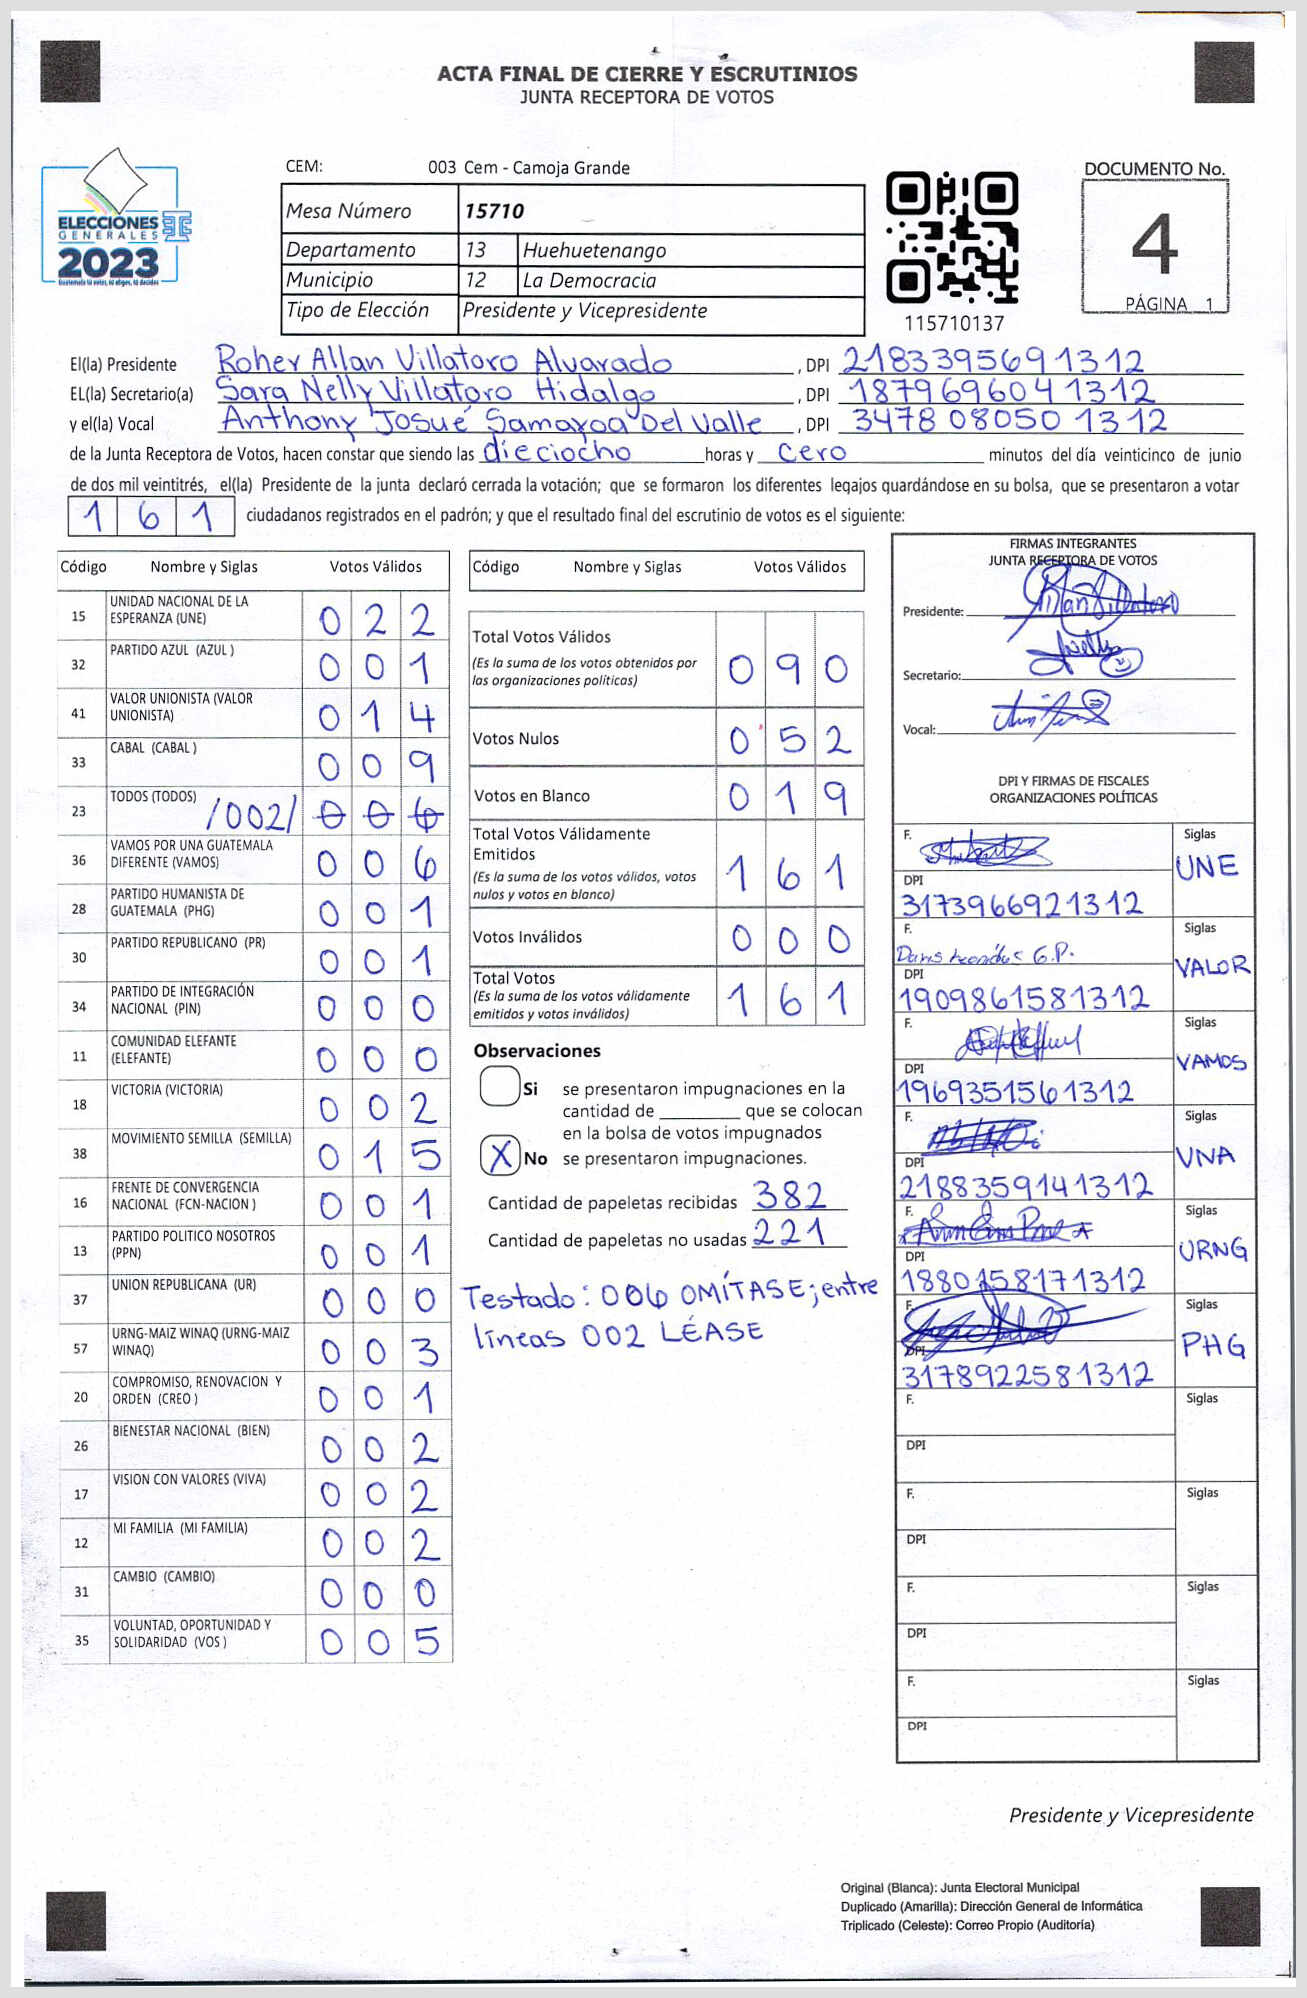 ACTA FINAL DE CIERRE Y ESCRUTINIOS
JUNTA RECEPTORA DE VOTOS
ELECCIONES
GENERALES
2023
CEM: 003 Cem - Camoja Grande
Mesa Número 15710
Departamento 13 Huehuetenango
Municipio 12 La Democracia
Tipo de Elección Presidente y Vicepresidente
115710137
DOCUMENTO No.
4
PÁGINA 1
El(la) Presidente Roher Allan Villatoro Alvarado, DPI 2183395691312
EL(la) Secretario(a) Sara Nelly Villatoro Hidalgo, DPI 1879696041312
y el(la) Vocal Anthony Josué Samayoa Del Valle, DPI 3478 08050 1312
de la Junta Receptora de Votos, hacen constar que siendo las dieciocho horas y cero minutos del día veinticinco de junio
de dos mil veintitrés, el(la) Presidente de la junta declaró cerrada la votación; que se formaron los diferentes legajos guardándose en su bolsa, que se presentaron a votar
1 6 1 ciudadanos registrados en el padrón; y que el resultado final del escrutinio de votos es el siguiente:
Código Nombre y Siglas Votos Válidos
15 UNIDAD NACIONAL DE LA
ESPERANZA (UNE) 0 2 2
32 PARTIDO AZUL (AZUL ) 0 0 1
41 VALOR UNIONISTA (VALOR
UNIONISTA) 0 1 4
33 CABAL (CABAL ) 0 0 9
23 TODOS (TODOS) /002/ 0 0 6
36 VAMOS POR UNA GUATEMALA
DIFERENTE (VAMOS) 0 0 6
28 PARTIDO HUMANISTA DE
GUATEMALA (PHG) 0 0 1
30 PARTIDO REPUBLICANO (PR) 0 0 1
34 PARTIDO DE INTEGRACIÓN
NACIONAL (PIN) 0 0 0
11 COMUNIDAD ELEFANTE
(ELEFANTE) 0 0 0
18 VICTORIA (VICTORIA) 0 0 2
38 MOVIMIENTO SEMILLA (SEMILLA) 0 1 5
16 FRENTE DE CONVERGENCIA
NACIONAL (FCN-NACION ) 0 0 1
13 PARTIDO POLITICO NOSOTROS
(PPN) 0 0 1
37 UNION REPUBLICANA (UR) 0 0 0
57 URNG-MAIZ WINAQ (URNG-MAIZ
WINAQ) 0 0 3
20 COMPROMISO, RENOVACION Y
ORDEN (CREO ) 0 0 1
26 BIENESTAR NACIONAL (BIEN) 0 0 2
17 VISION CON VALORES (VIVA) 0 0 2
12 MI FAMILIA (MI FAMILIA) 0 0 2
31 CAMBIO (CAMBIO) 0 0 0
35 VOLUNTAD, OPORTUNIDAD Y
SOLIDARIDAD (VOS ) 0 0 5
Código Nombre y Siglas Votos Válidos
Total Votos Válidos
(Es la suma de los votos obtenidos por
las organizaciones políticas) 0 9 0
Votos Nulos 0 5 2
Votos en Blanco 0 1 9
Total Votos Válidamente
Emitidos
(Es la suma de los votos válidos, votos
nulos y votos en blanco) 1 6 1
Votos Inválidos 0 0 0
Total Votos
(Es la suma de los votos válidamente
emitidos y votos inválidos) 1 6 1
Observaciones
Si se presentaron impugnaciones en la
cantidad de ________ que se colocan
en la bolsa de votos impugnados
X No se presentaron impugnaciones.
Cantidad de papeletas recibidas 382
Cantidad de papeletas no usadas 221
Testado: 006 OMÍTASE; entre
líneas 002 LÉASE
FIRMAS INTEGRANTES
JUNTA RECEPTORA DE VOTOS
Presidente:
Secretario:
Vocal:
DPI Y FIRMAS DE FISCALES
ORGANIZACIONES POLÍTICAS
F. Siglas
UNE
DPI
3173966921312
F. Siglas
VALOR
DPI
1909861581312
F. Siglas
VAMOS
DPI
1969351561312
F. Siglas
VNA
DPI
2188359141312
F. Siglas
URNG
DPI
1880158171312
F. Siglas
PHG
DPI
3178922581312
F. Siglas
DPI
F. Siglas
DPI
F. Siglas
DPI
F. Siglas
DPI
Presidente y Vicepresidente
Original (Blanca): Junta Electoral Municipal
Duplicado (Amarilla): Dirección General de Informática
Triplicado (Celeste): Correo Propio (Auditoría)